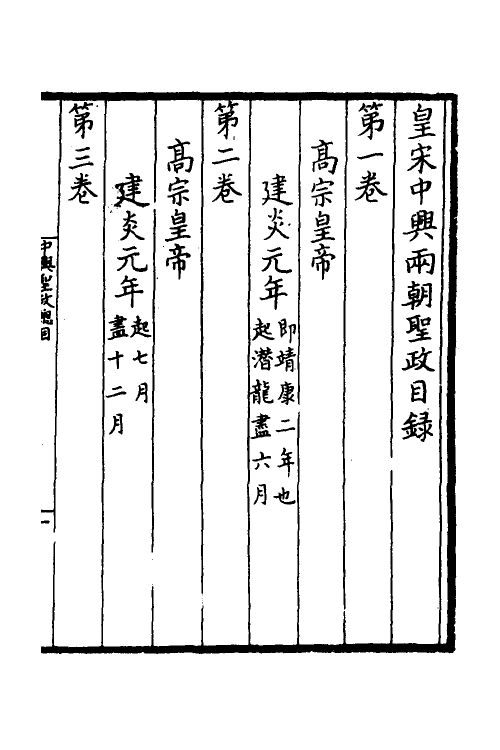 皇宋中興兩朝聖政目録
第一卷
高宗皇帝
建炎元年即靖康二年也
起潛龍盡六月
第二卷
高宗皇帝
建炎元年起七月
盡十二月
第三卷
中興聖政總目
一